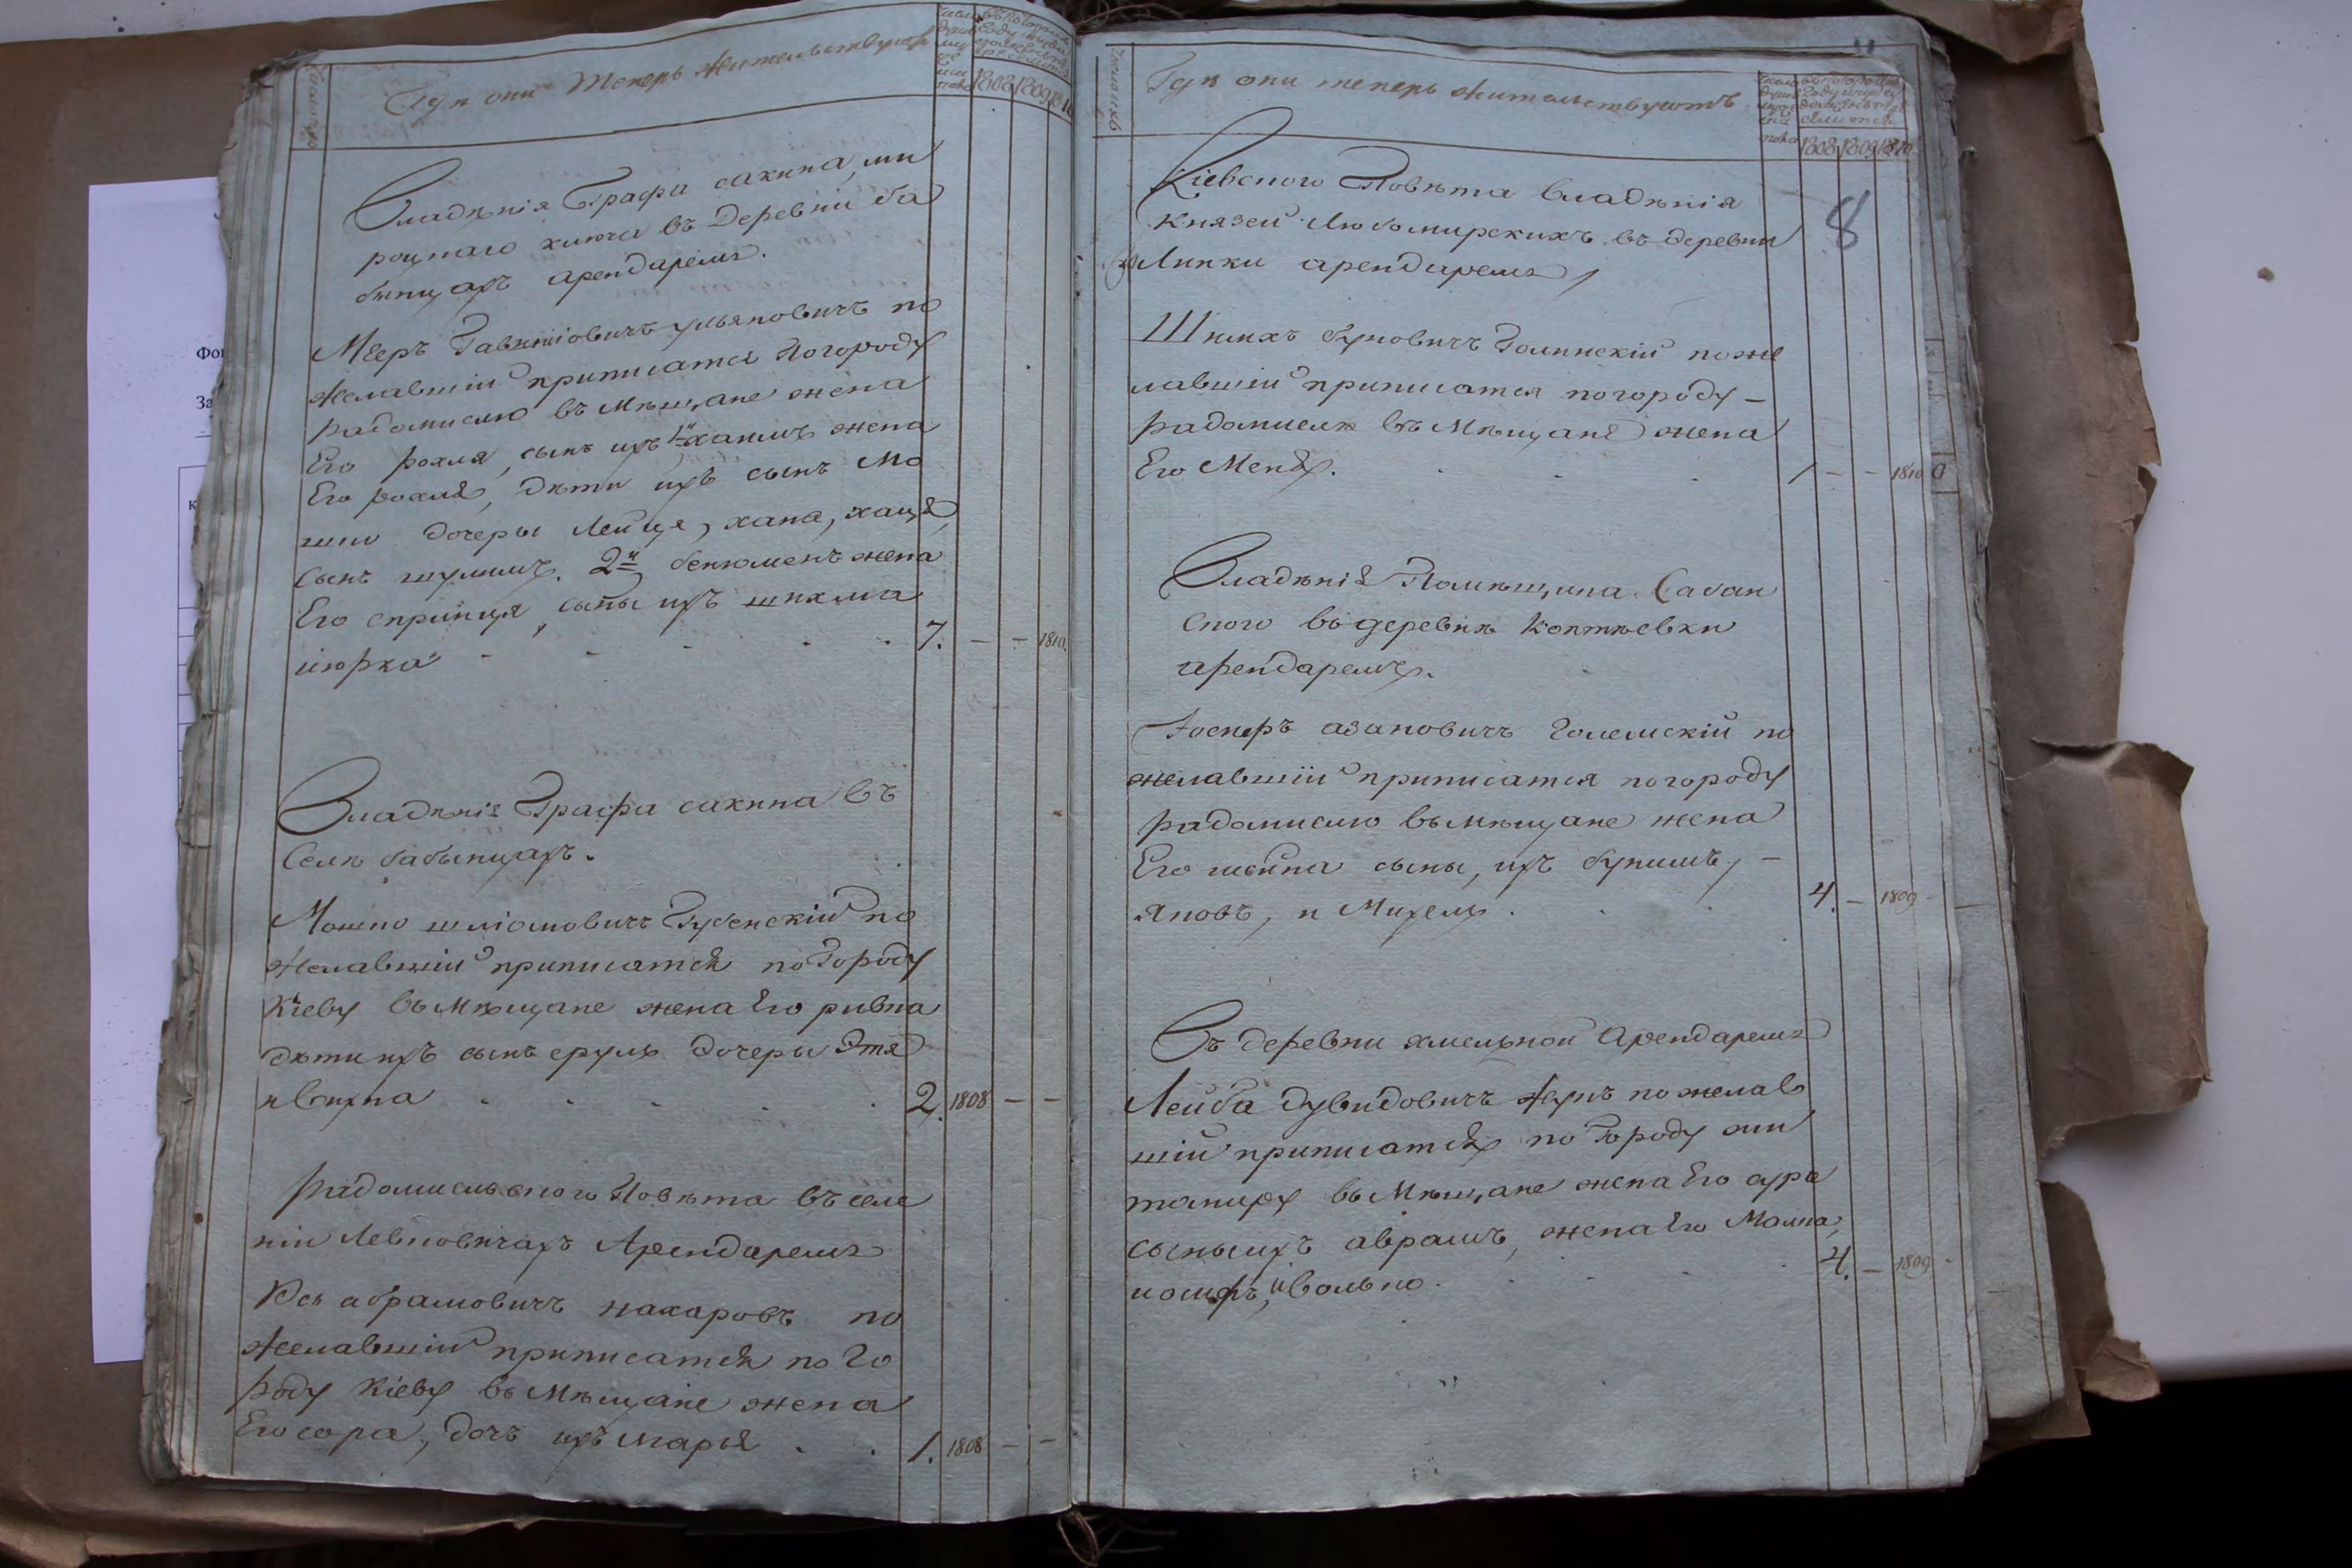 Гдѣ они теперь жительствуютъ
1808 1809 1810
Владѣнія Графа сакина, ми
роцкаго ключа въ Деревни ба
бинцахъ арендаремъ.
Мееръ улъяновичъ по
желавшій приписатся погороду
радомислю въ мѣщане жена
Его рохля, сынъ ихъ 1й хаимъ жена
Его рохля, дѣти ихъ сынъ мо
шко дочеры Лейця, хана, хаця,
сынъ шулимъ. 2й бенюменъ жена
Его спринця, сыны ихъ шихма
июрка 7. — — 1810.
Владѣнія Графа сакина въ
Селѣ бабынцахъ.
Мошко шліомовичъ Губенскій по
желавшій приписатся погороду
Кіеву въ мѣщане жена Его ривка
дѣти ихъ сынъ сруль дочеры Этя
и вихна 2. 1808 — —
радомисльского Повѣта въ селе
ніи Левковичахъ Арендаремъ
абрамовичъ захаровъ по
желавшій приписатся по го
роду Кіеву въ Мѣщане жена
Его сора, дочъ ихъ марья 1. 1808 — —
Гдѣ они теперь жительствуютъ
1808 1809 1810
8
Кіевского Повѣта владѣнія
Князей Любомирскихъ въ деревни
Липки арендаремъ,
буновичъ Голинскій поже
лавшій приписатся погороду —
радомислю въ Мѣщане жена
Его Мендя. 1 — — 1810
Владѣнія Помѣщика Сабан
ского въ деревнѣ Коптѣевки
арендаремъ.
азановичъ Големскій по
желавшій приписатся погороду
радомислю въ мѣщане жена
Его шейна сыны, ихъ бунимъ, —
Яновъ, и Михель. 4. — 1809 —
Въ деревни хмельной Арендаремъ
Лейба дувидовичъ жукъ пожелав
шій приписатся по Городу жи
томиру въ Мѣщане жена Его сура
сыны ихъ аврамъ, жена Его Малка,
иосифъ, и волько. 4. — 1809 —